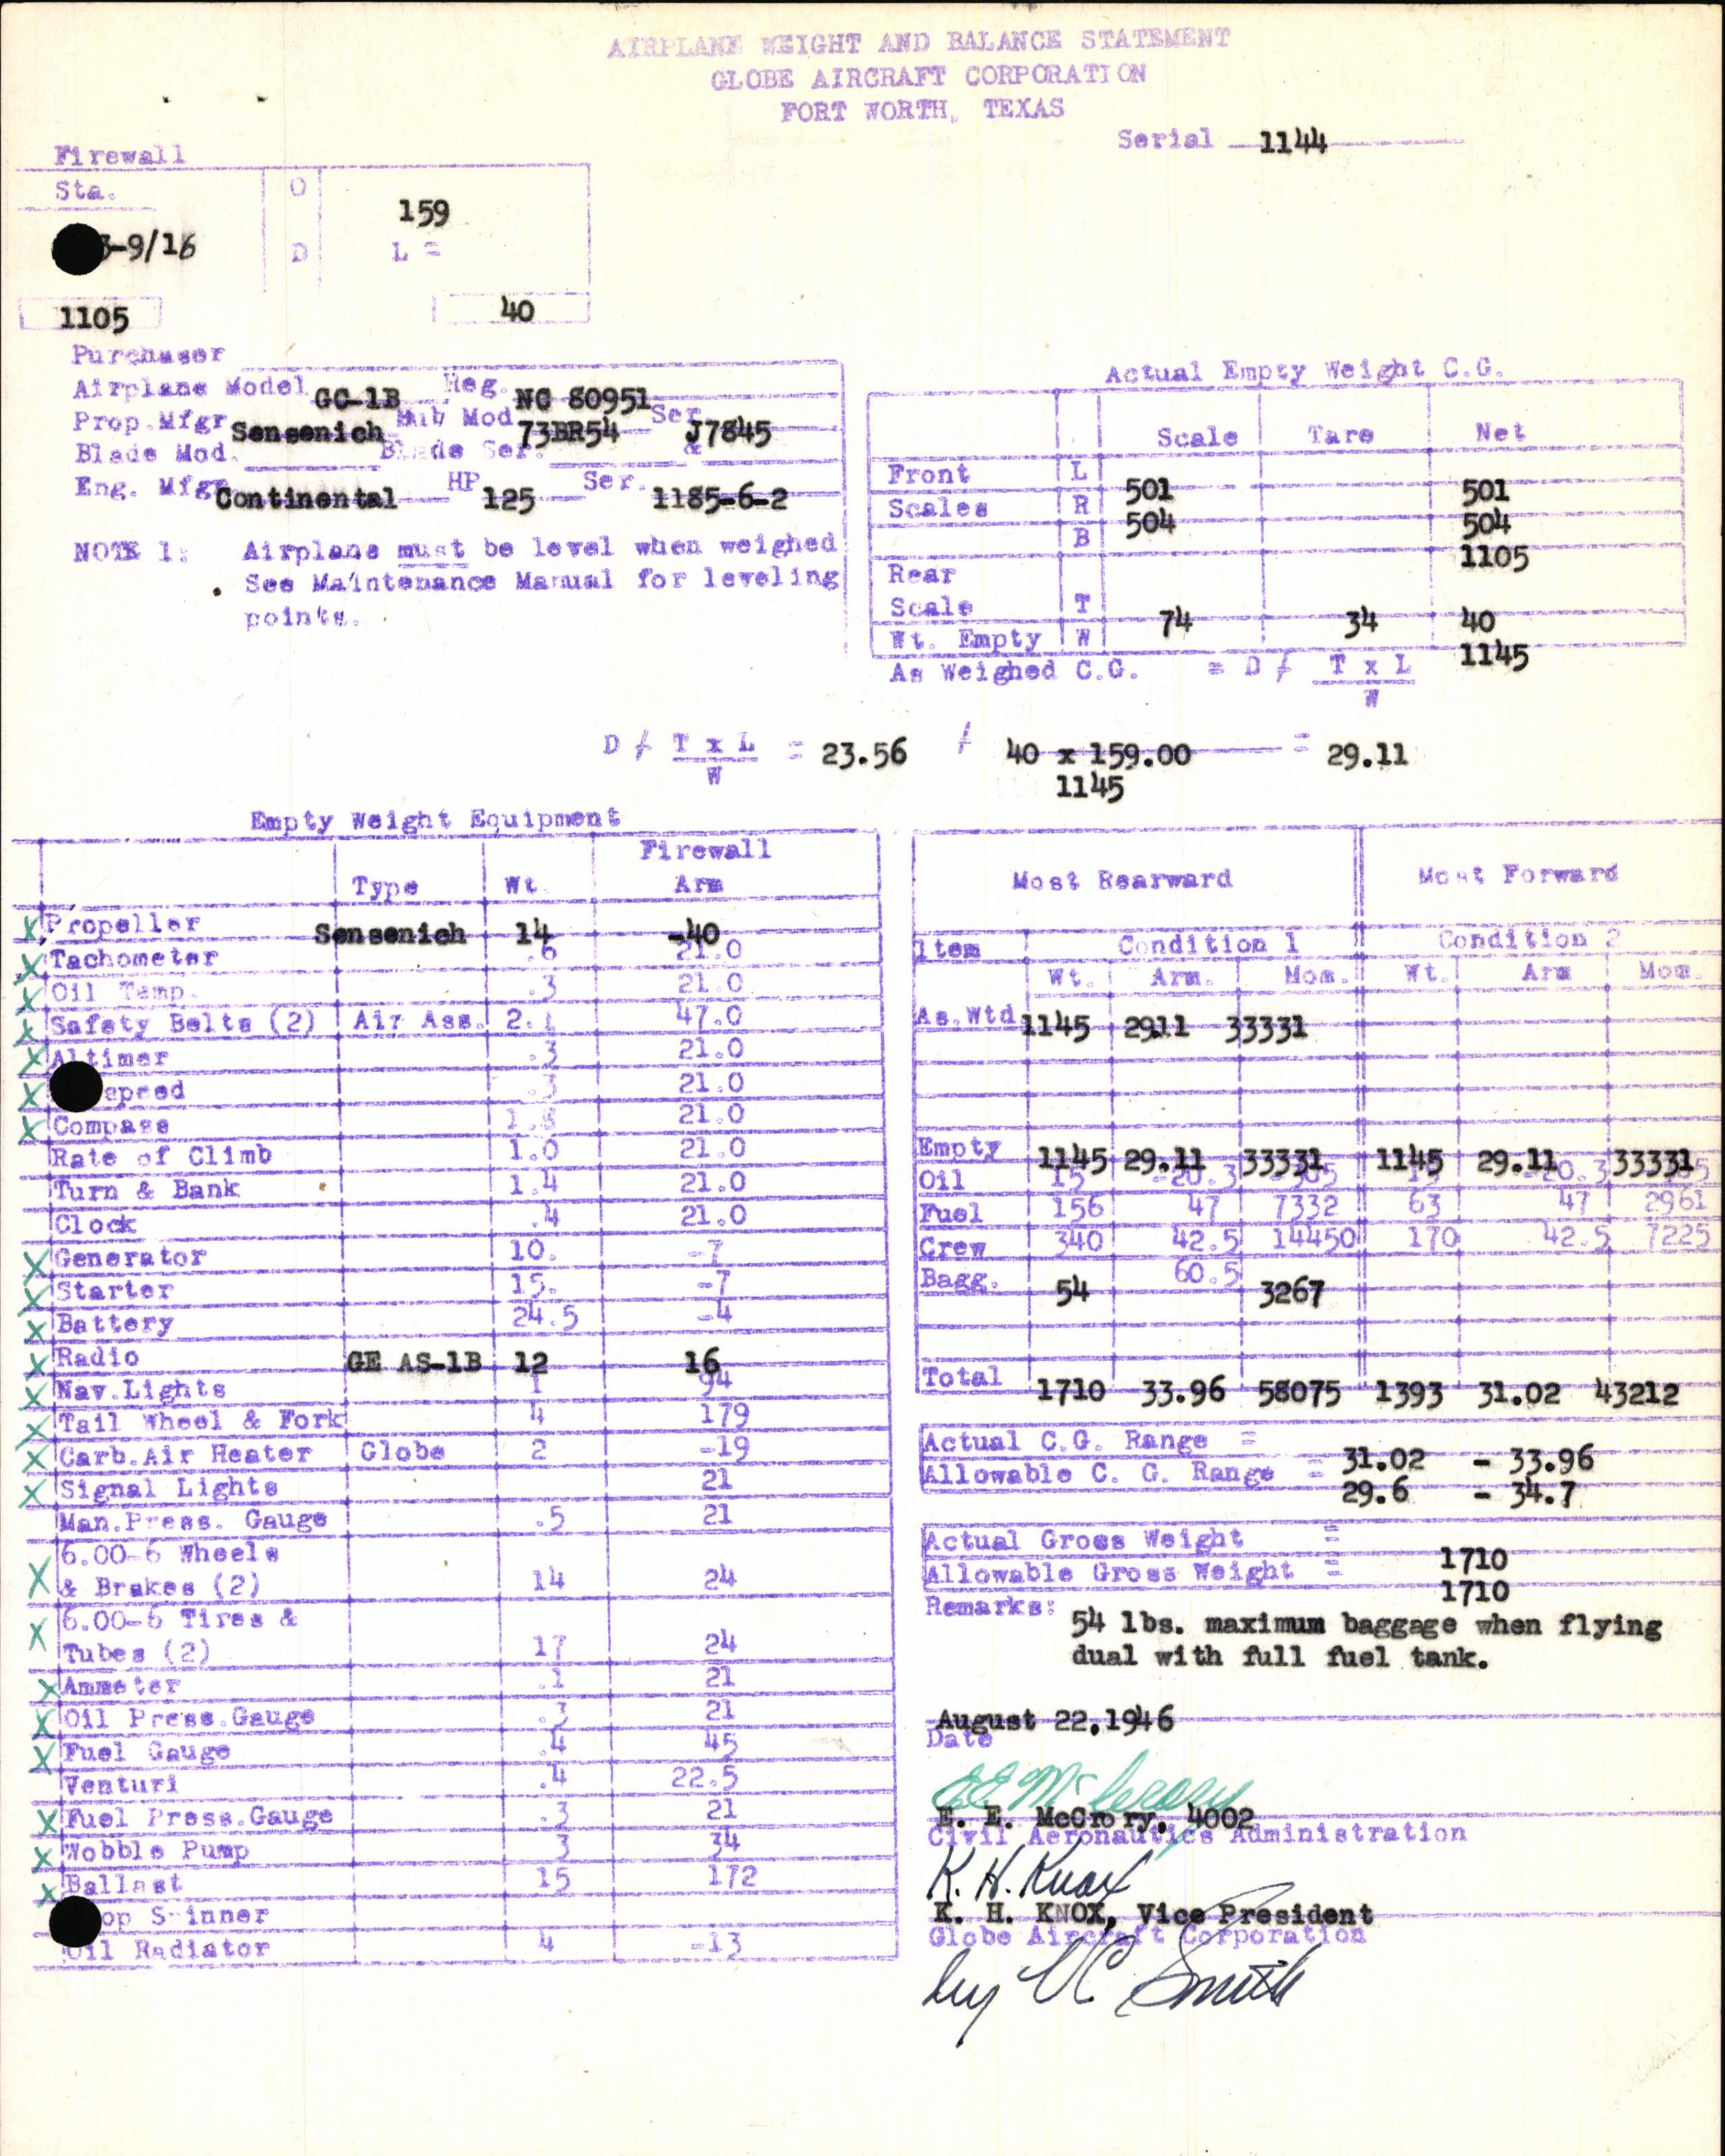 AIRPLANE WEIGHT AND BALANCE STATEMENT
GLOBE AIRCRAFT CORPORATION
FORT WORTH, TEXAS
Serial 1144
Firewall
Sta. O
159
3-9/16 D L =
1105 40
Purchaser
Airplane Model GC-1B Reg. NC 80951
Prop Mfgr Sensenich Hub Mod 73BR54 Ser. J7845
Blade Mod. Blade Ser. &
Eng. Mfgr Continental HP 125 Ser. 1185-6-2
NOTE 1: Airplane must be level when weighed
See Maintenance Manual for leveling
points.
Actual Empty Weight C.G.
Scale Tare Net
Front L 501 501
Scales R 504 504
B 1105
Rear
Scale T 74 34 40
Wt. Empty W 1145
As Weighed C.G. = D / T x L
W
D / T x L = 23.56 / 40 x 159.00 = 29.11
W 1145
Empty Weight Equipment
Type Wt. Firewall Arm
X Propeller Sensenich 14 -40
X Tachometer .6 21.0
X Oil Temp. .3 21.0
X Safety Belts (2) Air Ass. 2.1 47.0
X Altimer .3 21.0
X speed .3 21.0
X Compass 1.8 21.0
Rate of Climb 1.0 21.0
Turn & Bank 1.4 21.0
Clock .4 21.0
X Generator 10. -7
X Starter 15. -7
X Battery 24.5 -4
X Radio GE AS-1B 12 16
X Nav.Lights 1 94
X Tail Wheel & Fork 4 179
X Carb.Air Heater Globe 2 -19
X Signal Lights 21
Man.Press. Gauge .5 21
6.00-6 Wheels
X & Brakes (2) 14 24
X 6.00-6 Tires &
Tubes (2) 17 24
X Ammeter .1 21
X Oil Press.Gauge .3 21
X Fuel Gauge .4 45
Venturi .4 22.5
X Fuel Press.Gauge .3 21
X Wobble Pump 3 34
X Ballast 15 172
op Spinner
Oil Radiator 4 -13
Most Rearward Most Forward
Item Condition 1 Condition 2
Wt. Arm. Mom. Wt. Arm Mom.
As.Wtd 1145 29.11 33331
Empty 1145 29.11 33331 1145 29.11 33331
Oil 15 -20.3 305 15 -20.3
Fuel 156 47 7332 63 47 2961
Crew 340 42.5 14450 170 42.5 7225
Bagg. 54 60.5 3267
Total 1710 33.96 58075 1393 31.02 43212
Actual C.G. Range = 31.02 - 33.96
Allowable C. G. Range = 29.6 - 34.7
Actual Gross Weight = 1710
Allowable Gross Weight = 1710
Remarks: 54 lbs. maximum baggage when flying
dual with full fuel tank.
August 22,1946
Date
E E McCrory
E. E. McCrory, 4002
Civil Aeronautics Administration
K. H. Knox
K. H. KNOX, Vice President
Globe Aircraft Corporation
by C Smith